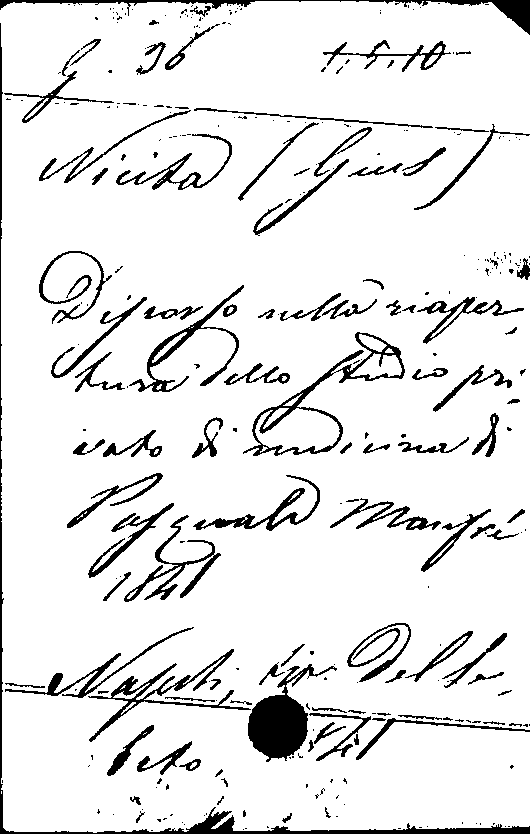 G. 36 1.5.10
Nicita (Gius)
Discorso nella riaper-
tura dello studio pri-
vato di medicina di
Pasquale Manfré
1841
Napoli, tip. Del Se-
beto, 1841